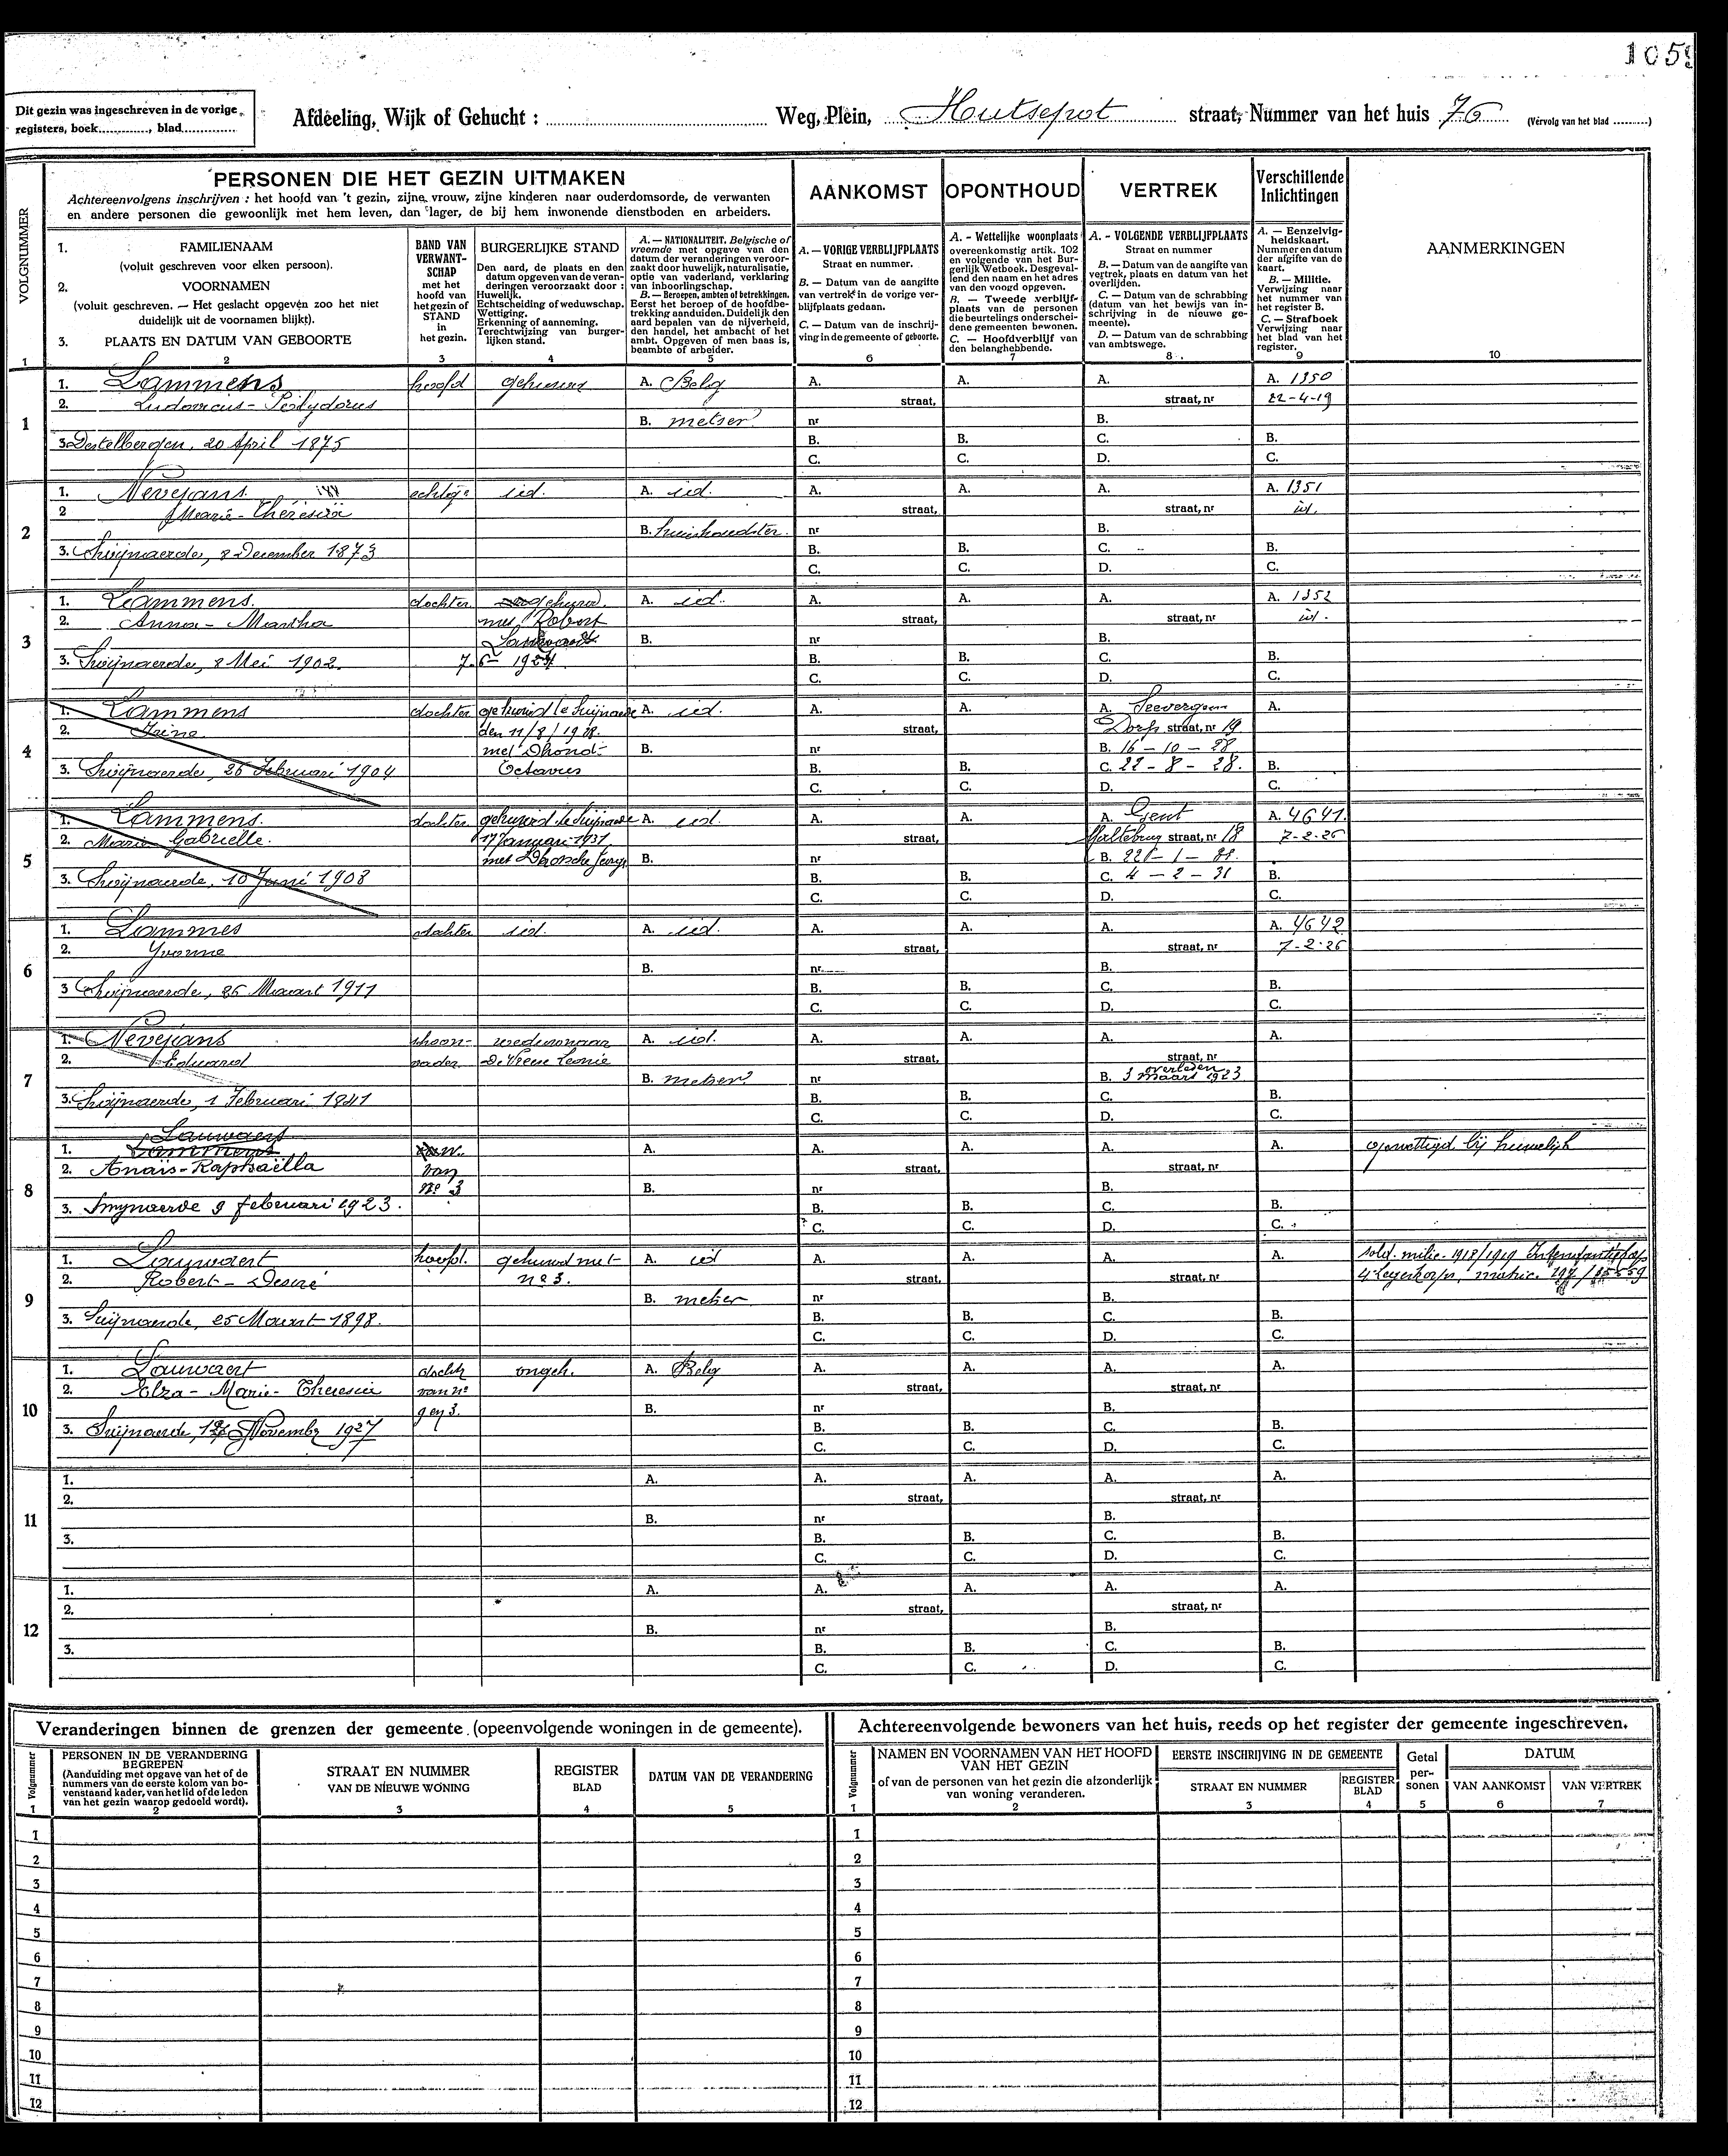 1059
Dit gezin was ingeschreven in de vorige
registers, boek............, blad..............
Afdeeling, Wijk of Gehucht : ........ Weg, Plein, Houtsepot straat, Nummer van het huis 76 (Vervolg van het blad .........)
VOLGNUMMER
PERSONEN DIE HET GEZIN UITMAKEN
Achtereenvolgens inschrijven : het hoofd van 't gezin, zijne vrouw, zijne kinderen naar ouderdomsorde, de verwanten
en andere personen die gewoonlijk met hem leven, dan lager, de bij hem inwonende dienstboden en arbeiders.
AANKOMST
OPONTHOUD
VERTREK
Verschillende
Inlichtingen
AANMERKINGEN
1. FAMILIENAAM
(voluit geschreven voor elken persoon).
2. VOORNAMEN
(voluit geschreven. — Het geslacht opgeven zoo het niet
duidelijk uit de voornamen blijkt).
3. PLAATS EN DATUM VAN GEBOORTE
BAND VAN
VERWANT-
SCHAP
met het
hoofd van
het gezin of
STAND
in
het gezin.
BURGERLIJKE STAND
Den aard, de plaats en den
datum opgeven van de veran-
deringen veroorzaakt door :
Huwelijk.
Echtscheiding of weduwschap.
Wettiging.
Erkenning of aanneming.
Terechtwijzing van burger-
lijken stand.
A. — NATIONALITEIT. Belgische of
vreemde met opgave van den
datum der veranderingen veroor-
zaakt door huwelijk, naturalisatie,
optie van vaderland, verklaring
van inboorlingschap.
B. — Beroepen, ambten of betrekkingen.
Eerst het beroep of de hoofdbe-
trekking aanduiden. Duidelijk den
aard bepalen van de nijverheid,
den handel, het ambacht of het
ambt. Opgeven of men baas is,
beambte of arbeider.
A. — VORIGE VERBLIJFPLAATS
Straat en nummer.
B. — Datum van de aangifte
van vertrek in de vorige ver-
blijfplaats gedaan.
C. — Datum van de inschrij-
ving in de gemeente of geboorte.
A. - Wettelijke woonplaats
overeenkomstig artik. 102
en volgende van het Bur-
gerlijk Wetboek. Desgeval-
lend den naam en het adres
van den voogd opgeven.
B. — Tweede verblijf-
plaats van de personen
die beurtelings onderschei-
dene gemeenten bewonen.
C. — Hoofdverblijf van
den belanghebbende.
A. - VOLGENDE VERBLIJFPLAATS
Straat en nummer
B. — Datum van de aangifte van
vertrek, plaats en datum van het
overlijden.
C. — Datum van de schrabbing
(datum van het bewijs van in-
schrijving in de nieuwe ge-
meente).
D. — Datum van de schrabbing
van ambtswege.
A. — Eenzelvig-
heidskaart.
Nummer en datum
der afgifte van de
kaart.
B. — Militie.
Verwijzing naar
het nummer van
het register B.
C. — Strafboek
Verwijzing naar
het blad van het
register.
1 2 3 4 5 6 7 8 9 10
1
1. Lammens hoofd gehuwd A. Belg A. A. A. A. 1350
2. Ludovicus - Polydorus straat, straat, nr 22-4-19
B. metser nr B.
3. Destelbergen, 20 April 1875 B. B. C. B.
C. C. D. C.
2
1. Nevejans echtge id. A. id. A. A. A. A. 1351
2 Marie - Theresia straat, straat, nr id.
B. huishoudster nr B.
3. Swijnaerde, 8 December 1873 B. B. C. B.
C. C. D. C.
3
1. Lammens dochter gehuwd A. id. A. A. A. A. 1352
2. Anna - Martha met Robert straat, straat, nr id.
B. nr B.
3. Swijnaerde, 8 Mei 1902. B. B. C. B.
C. C. D. C.
4
1. Lammens dochter gehuwd te Swijnaerde A. id. A. A. A. Seevergem A.
2. Irène den 11/8/1928 straat, Dorp straat, nr 19
met Dhondt B. nr B. 16 - 10 - 28
3. Swijnaerde, 26 Februari 1904 Octavus B. B. C. 22 - 8 - 28. B.
C. C. D.
5
1. Lammens dochter gehuwd te Swijnaerde A. id. A. A. A. Gent A. 4641.
2. Marie Gabrielle. 17 Januari 1931 straat, Maltebrug straat, nr 18 7-2-26
B. nr B.
3. Swijnaerde, 10 Juni 1908 B. B. C. 4 - 2 - 31 B.
C. C. D. C.
6
1. Lammes dochter id. A. id. A. A. A. A. 4642
2. Yvonne straat, straat, nr 7-2-26
B. nr B.
3 Swijnaerde, 26 Maart 1911 B. B. C. B.
C. C. D. C.
7
1. Nevejans schoon- weduwnaar A. id. A. A. A. A.
2. Eduard vader De Vreese Leonie straat, straat, nr
overleden
B. metser nr B. 3 maart 1923
3. Swijnaerde, 1 Februari 1841 B. B. C. B.
C. C. D. C.
8
Lauwaert
1. Lammens A. A. A. A. A. gewettigd bij huwelijk
2. Anaïs-Raphaëlla van straat, straat, nr
no 3 B. nr B.
3. Swynaerde 9 februari 1923. B. B. C. B.
C. C. D. C.
9
1. Lauwaert hoofd. gehuwd met A. id A. A. A. A. sold. milic. 1918/1919
2. Robert - Desiré no 3. straat, straat, nr 4 Legerkorps, matric.
B. metser nr B.
3. Swijnaerde, 25 Maart 1898. B. B. C. B.
C. C. D. C.
10
1. Lauwaert dochter ongeh. A. Belg A. A. A. A.
2. Elza - Marie - Theresia van no straat, straat, nr
9 en 3. B. nr B.
3. Swijnaerde, November 1927 B. B. C. B.
C. C. D. C.
11
1. A. A. A. A. A.
2. straat, straat, nr
B. nr B.
3. B. B. C. B.
C. C. D. C.
12
1. A. A. A. A. A.
2. straat, straat, nr
B. nr B.
3. B. B. C. B.
C. C. D. C.
Veranderingen binnen de grenzen der gemeente (opeenvolgende woningen in de gemeente).
Volgnummer
PERSONEN IN DE VERANDERING
BEGREPEN
(Aanduiding met opgave van het of de
nummers van de eerste kolom van bo-
venstaand kader, van het lid of de leden
van het gezin waarop gedoeld wordt).
STRAAT EN NUMMER
VAN DE NIEUWE WONING
REGISTER
BLAD
DATUM VAN DE VERANDERING
1 2 3 4 5
1
2
3
4
5
6
7
8
9
10
11
12
Achtereenvolgende bewoners van het huis, reeds op het register der gemeente ingeschreven.
Volgnummer
NAMEN EN VOORNAMEN VAN HET HOOFD
VAN HET GEZIN
of van de personen van het gezin die afzonderlijk
van woning veranderen.
EERSTE INSCHRIJVING IN DE GEMEENTE
STRAAT EN NUMMER
REGISTER
BLAD
Getal
per-
sonen
DATUM
VAN AANKOMST
VAN VERTREK
1 2 3 4 5 6 7
1
2
3
4
5
6
7
8
9
10
11
12